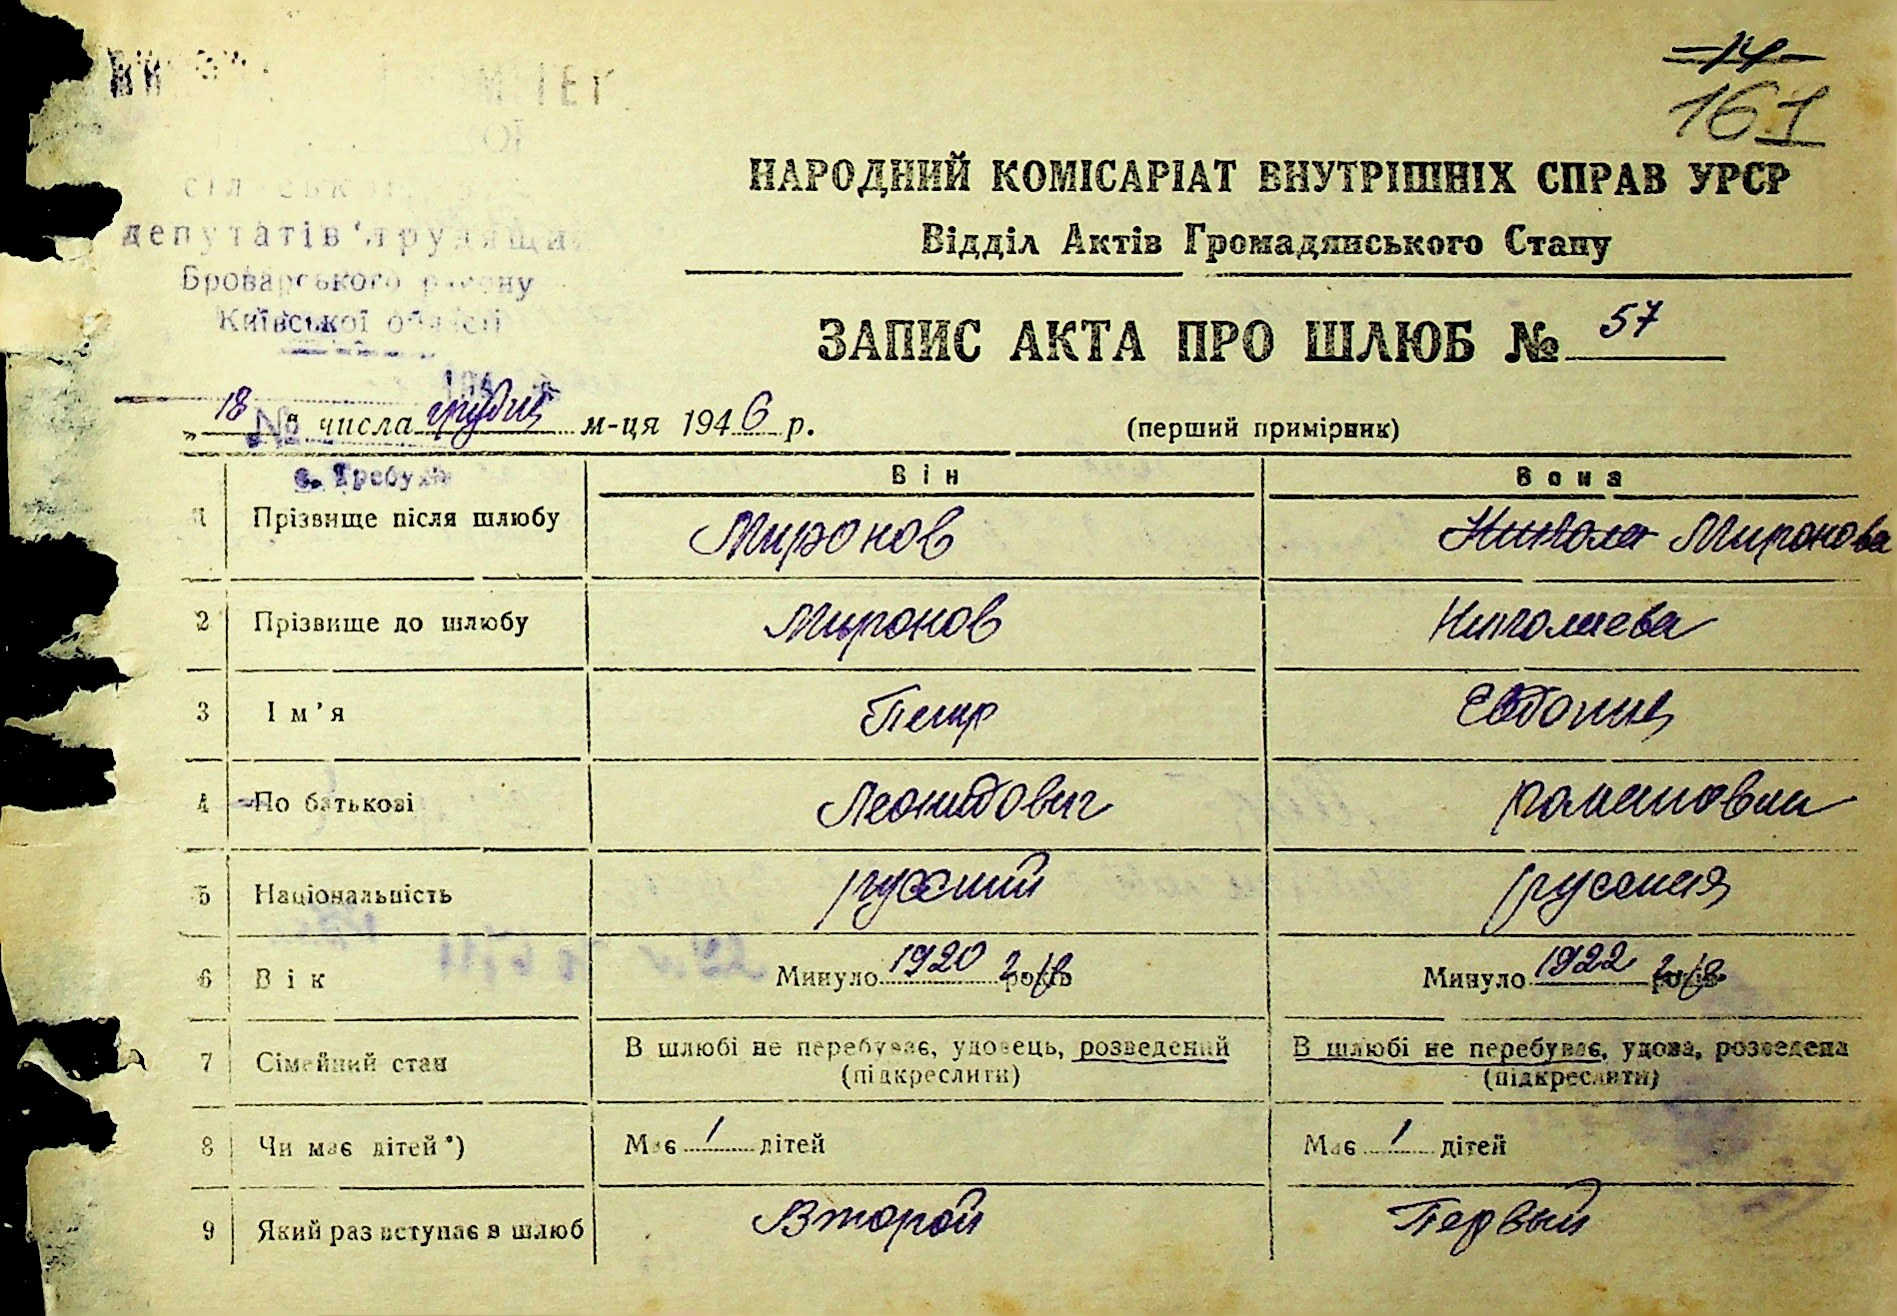 14
161
НАРОДНИЙ КОМІСАРІАТ ВНУТРІШНІХ СПРАВ УРСР
Відділ Актів Громадянського Стану
депутатів трудящих
Броварського району
Київської області
ЗАПИС АКТА ПРО ШЛЮБ № 57
„18 числа грудня м-ця 1946 р. (перший примірник)
с. Требухів
Він Вона
1 Прізвище після шлюбу Миронов Никола Миронова
2 Прізвище до шлюбу Миронов Николаева
3 Ім’я Петр Евдокия
4 По батькові Леонидович Романовна
5 Національність русский русская
6 Вік Минуло 1920 років Минуло 1922 років
7 Сімейний стан В шлюбі не перебуває, удовець, розведений В шлюбі не перебуває, удова, розведена
(підкреслити) (підкреслити)
8 Чи має дітей*) Має 1 дітей Має 1 дітей
9 Який раз вступає в шлюб Второй Первый